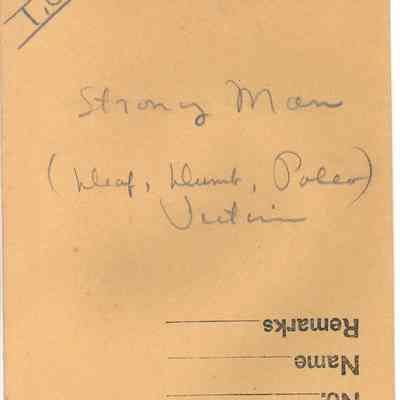 Strong Man
(Deaf, Dumb, Poleo)
Victim
Remarks
Name
No.